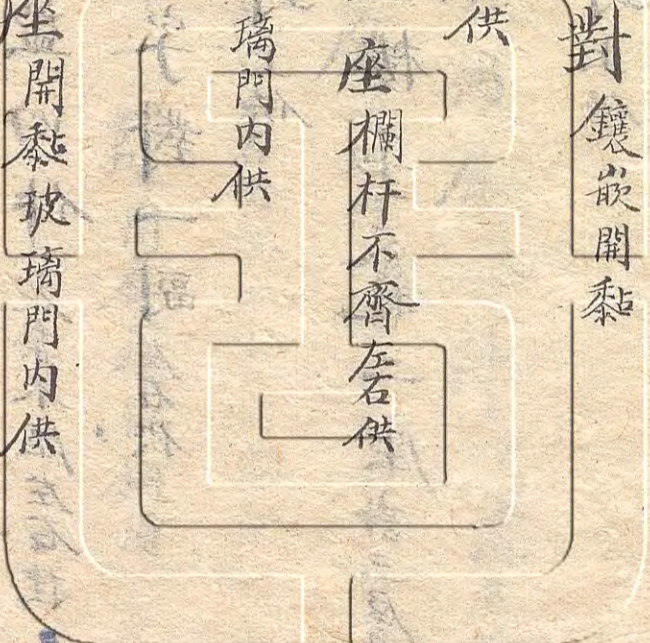 對鑲嵌開黏
供
座欄杆不齊左右供
璃門内供
座開黏玻璃門内供